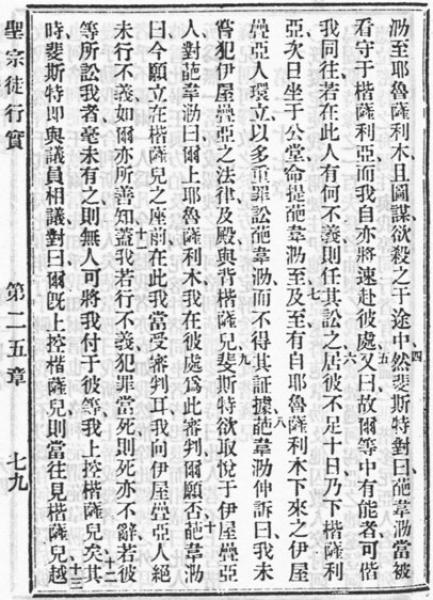 泐至耶魯薩利木、且圖謀欲殺之于途中、四然斐斯特對曰、葩韋泐當被
看守于楷薩利亞、而我自亦將速赴彼處、五又曰、故爾等中有能者、可偕
我同往、若在此人有何不義、則任其訟之、六居彼不足十日、乃下楷薩利
亞、次日坐于公堂、命提葩韋泐至、七及至、有自耶魯薩利木下來之伊屋
疊亞人環立、以多重罪訟葩韋泐、而不得其証據、八葩韋泐伸訴曰、我未
嘗犯伊屋疊亞之法律、及殿、與背楷薩兒、九斐斯特欲取悅于伊屋疊亞
人、對葩韋泐曰、爾上耶魯薩利木、我在彼處爲此審判、爾願否、十葩韋泐
曰、今願立在楷薩兒之座前、在此我當受審判耳、我向伊屋疊亞人絕
未行不義、如爾亦所善知、十一蓋我若行不義、犯罪當死、則死亦不辭、若彼
等所訟我者、毫未有之、則無人可將我付于彼等、我上控楷薩兒矣、十二其
時斐斯特即與議員相議、對曰、爾旣上控楷薩兒、則當往見楷薩兒、十三越
聖宗徒行實　第二五章　七九